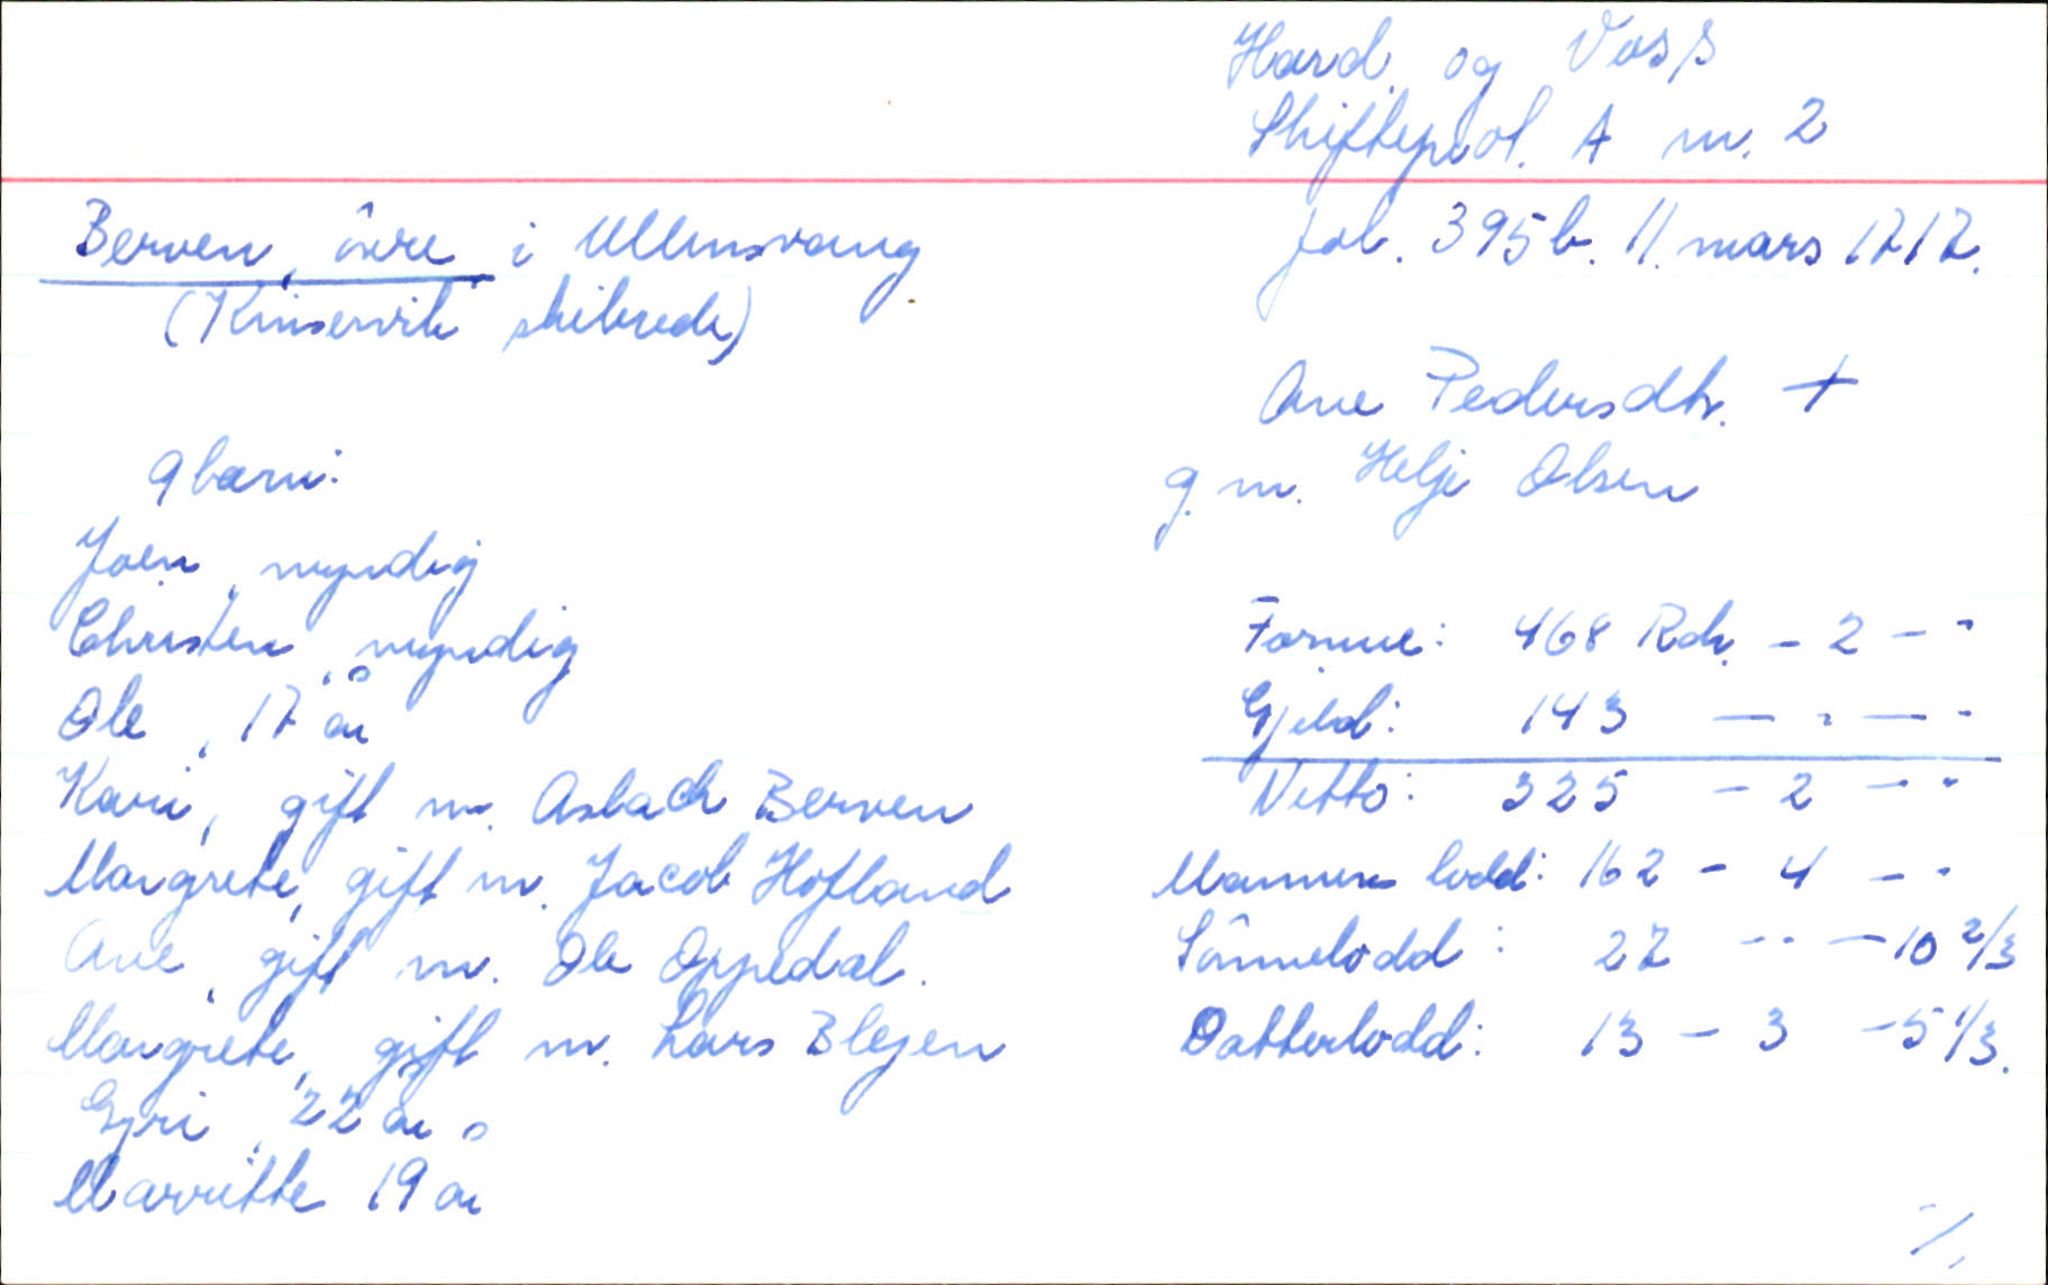 Hard. og Voss
Skifteprot. A nr. 2
Berven, övre i Ullensvang
fol. 395b. 11. mars 1717.
(Kinservik skibrede)
Ane Pedersdtr. +
g. m. Helje Olsen
9 barn:
Joen, myndig
Christen, myndig
Ole, 17 år
Kari, gift m. Aslach Berven
Margrete, gift m. Jacob Hofland
Ane, gift m. Ole Oppedal.
Margrete, gift m. Lars Blejen
Gyri, 22 år
Marritte 19 år
Formue: 468 Rdr. - 2 - -
Gjeld: 143 - - - -
Netto: 325 - 2 - -
Mannens lodd: 162 - 4 - -
Sönnelodd: 27 - - - 10 2/3
Datterlodd: 13 - 3 - 5 1/3.
./.